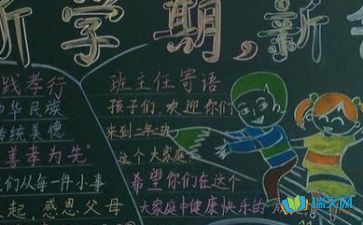 新学期,新
践孝行
中华民族
传统美德
善孝为先"
我们从每一件小事
起,感恩父母
班主任寄语
孩子们 欢迎你们
来到二年班
这个大家庭
希望你们在这个
大家庭中健康快乐的成
瑞文网